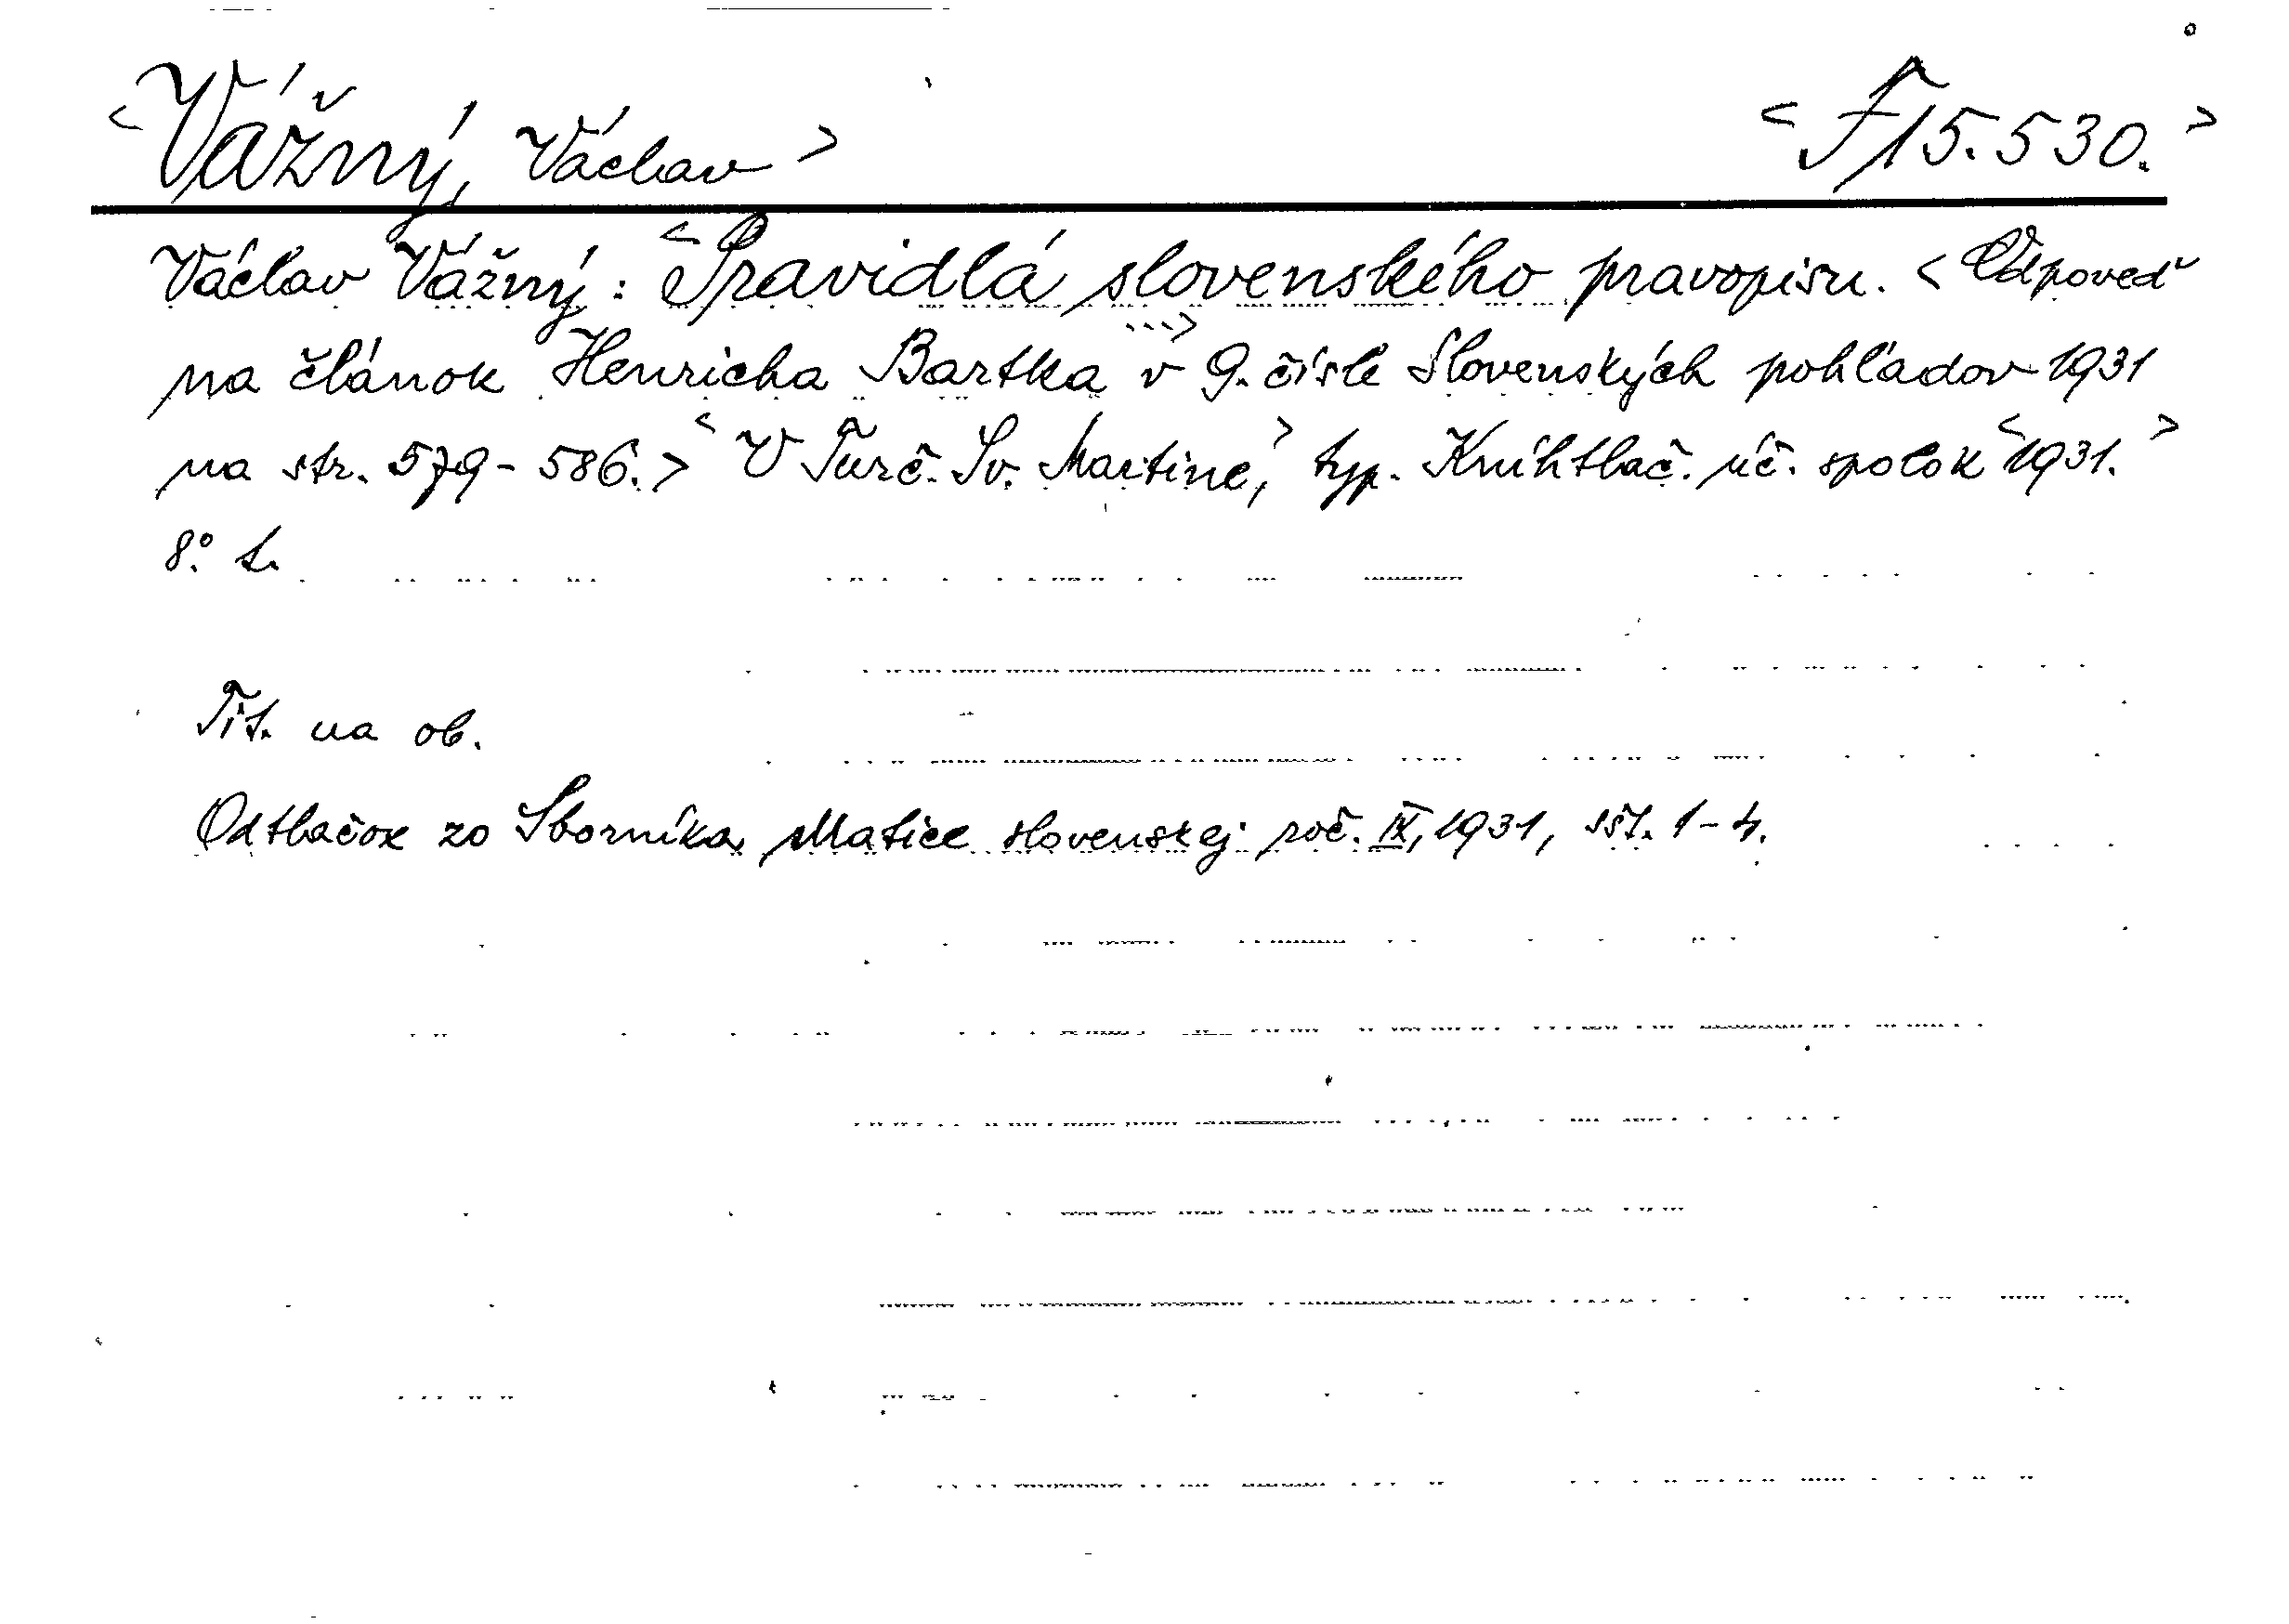 <Vážný, Václav> <F 15.530.>
Václav Vážný: <Pravidlá slovenského pravopisu. <Odpoveď
na článok Henricha Bartka ...> v 9. čísle Slovenských pohľadov 1931
na str. 579-586.> <V Turč. Sv. Martine,> typ. Kníhtlač. úč. spolok <1931.>
8.° t.
Tit. na ob.
Odtlačok zo Sborníka Matice slovenskej roč. IX, 1931, sšt. 1-4.